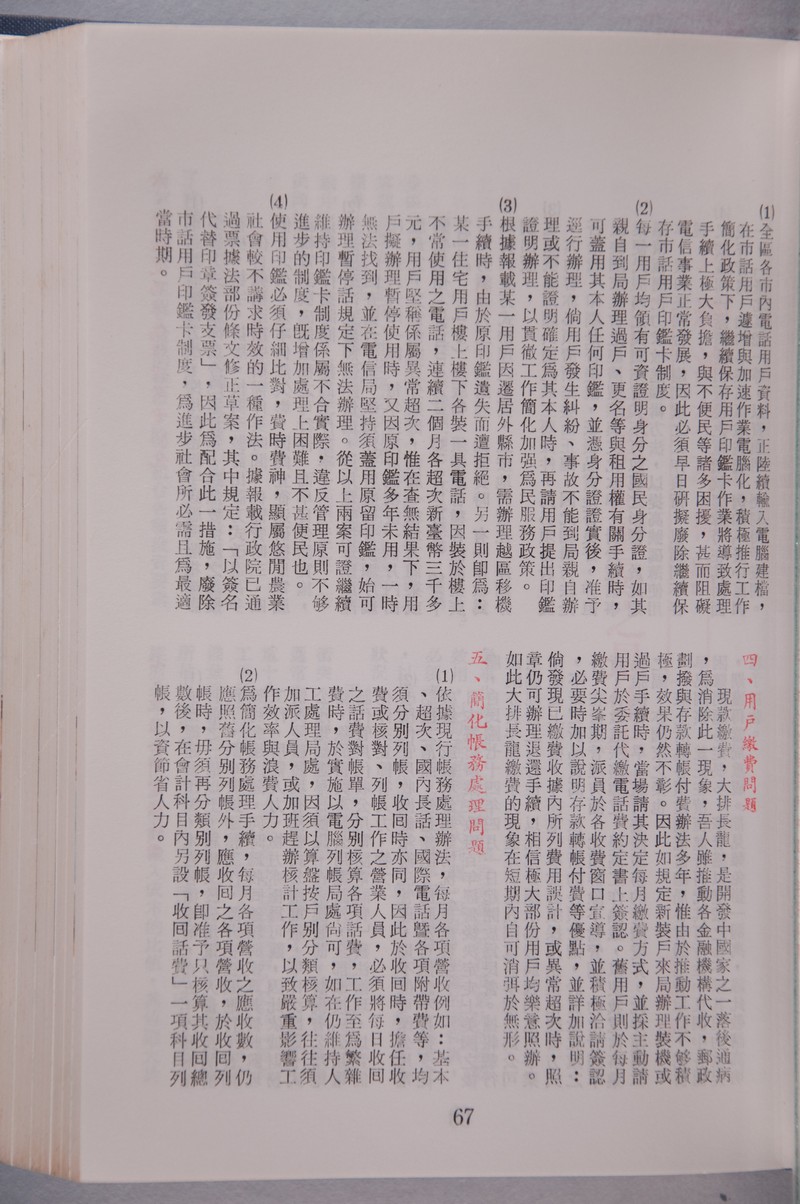 (1)全區各市內電話用戶資料，正陸續輸入電腦建檔，
在市話用戶遽增與加速作業電腦化，積極推行工作
簡化政策下，繼續保存用戶印鑑卡作業將導致處理
手續上極大負擔，與不便民等諸多困擾，甚而阻礙
電信事業正常發展，因此必須早日研擬廢除繼續保
存市話用戶印鑑卡制度。
(2)每一用戶均領有可資證明身分之國民身分證，如其
親自到局辦理過戶、更名等與租用權有關手續時，
可蓋用其本人任何印鑑，並憑身分證證實後，准予
逕行辦理，倘用戶發生糾紛、事故不能到局親自辦
理或不能證明確定爲其本人時，再請用戶提出印鑑
證明辦理，以貫徹工作簡化加强爲民服務政策。
(3)根據報載某一用戶因遷居外縣市，需辦理越區移機
手續時，由於原印鑑遺失而遭拒絕。另一則卽爲：
某一住宅用戶樓上樓下各裝一具電話，因裝於樓上
不常使用之電話，連續二個月各超次新臺幣三千多
元，用戶堅稱係屬異常超次，惟在查無結果下，用
戶擬辦理暫停使用時，又因原印鑑多年未用，一時
無法找到，並在電信局堅持須蓋用原留印鑑，始可
辦理暫停話規定下無法辦理。從以上兩案可證繼續
維持印鑑卡制度係屬不合實際，違反管理原則不够
進步的制度，旣增加處理上困難且不甚便民也。
(4)使用印鑑必須仔細比對，費時費神，顯屬悠閒農業
社會較不講求時效的一種作法。據報載行政院已通
過票據法部份條文修正草案，其中規定：「以簽名
代替印章簽發支票」，因此爲配合此一措施，廢除
市話用戶印鑑卡制度，爲進步社會所必需且爲最適
當時期。
四、用戶繳費問題
現款繳費，大排長龍，是開發中國家之一落後通病
，爲消除此一現象，吾人雖推動各金融機構代收，郵政
劃撥與存款轉帳付費辦法多年，惟由於推動工作不够積
極，效果仍然不彰。因此如規定新裝戶來局辦理裝機或
過戶手續時，當場請其決定每月繳費方式，並採主動請
用戶於委託代繳電話費約定書上簽認。舊用戶則於每月
繳費尖峯期，派員於各收費窗口宣導，並積極洽請簽認
，必要時加以說明存款轉帳付費等優點，並詳加說明：
倘發現已繳費收據內所列費用誤計，或異常超次時，照
章仍可辦理退還手續，相信極大部份用戶均樂意照辦。
如此大排長龍繳費的現象在短期內自可消弭於無形。
五、簡化帳務處理問題
(1)依據現行帳務處理辦法，每月各項營收例如：基本
、超次、國內長話、國際電話暨各項附帶費等，均
須分別列帳，收回時亦同，因此於收回時，擔任收
費或核對、列帳工作之營業人員，必須將每日收回
之話費對帳單，分別核算各項話費，工作至爲繁雜
費時，於實施以電腦列帳局處尙可，如在仍維持人
工處理局處，因須以算盤按戶別分類核算，往往須
加派人員，或加班趕辦核計工作，以致嚴重影響工
作效率與浪費人力。
(2)爲簡化帳務處理手續，每月各項營收之應收數，仍
應照舊分別列帳外，應收回之各項營收，於收回列
帳時，毋須再分類別列帳，卽准予只核算其收回總
數後，在會計科目內另設「收回話費」一項科目列
帳，以資節省人力。
67